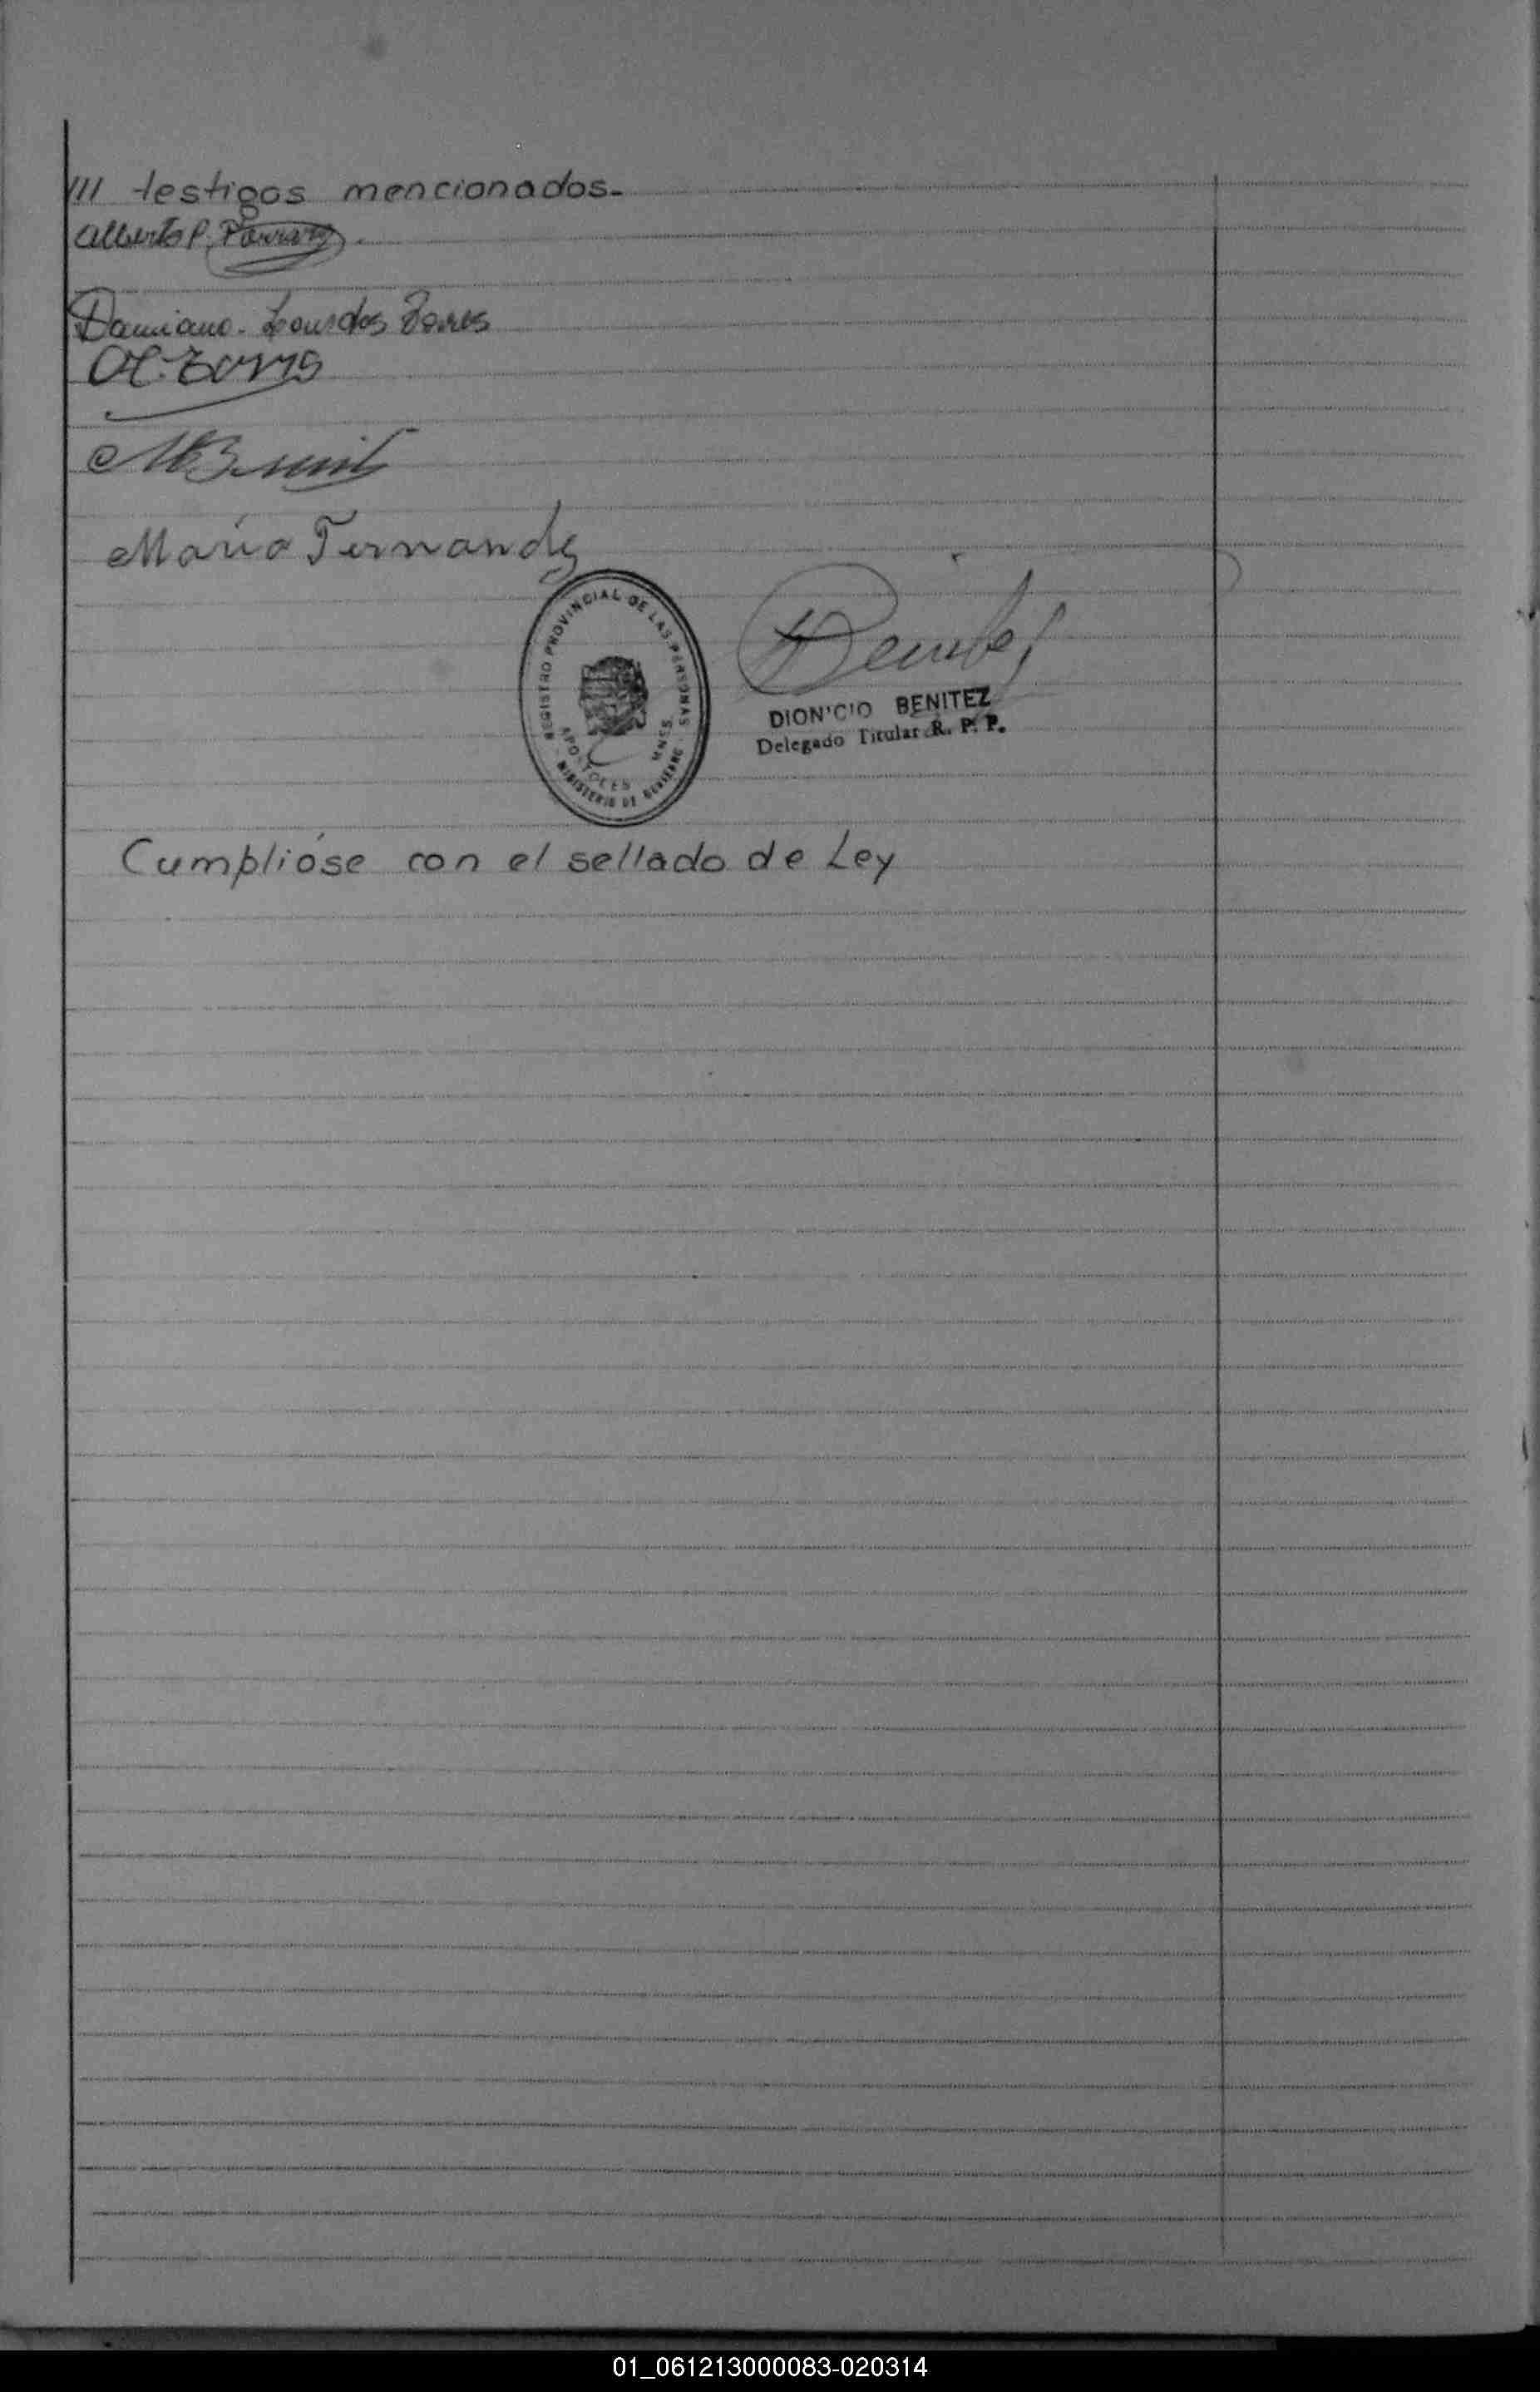 /// testigos mencionados.-
Alberto P.
Damiana. Lourdes Torres
María Fernandez
REGISTRO PROVINCIAL DE LAS PERSONAS
APOSTOLES MNES
MINISTERIO DE GOBIERNO
DION'C'O BENITEZ
Delegado Titular R. P. P.
Cumplióse con el sellado de Ley
01_061213000083-020314